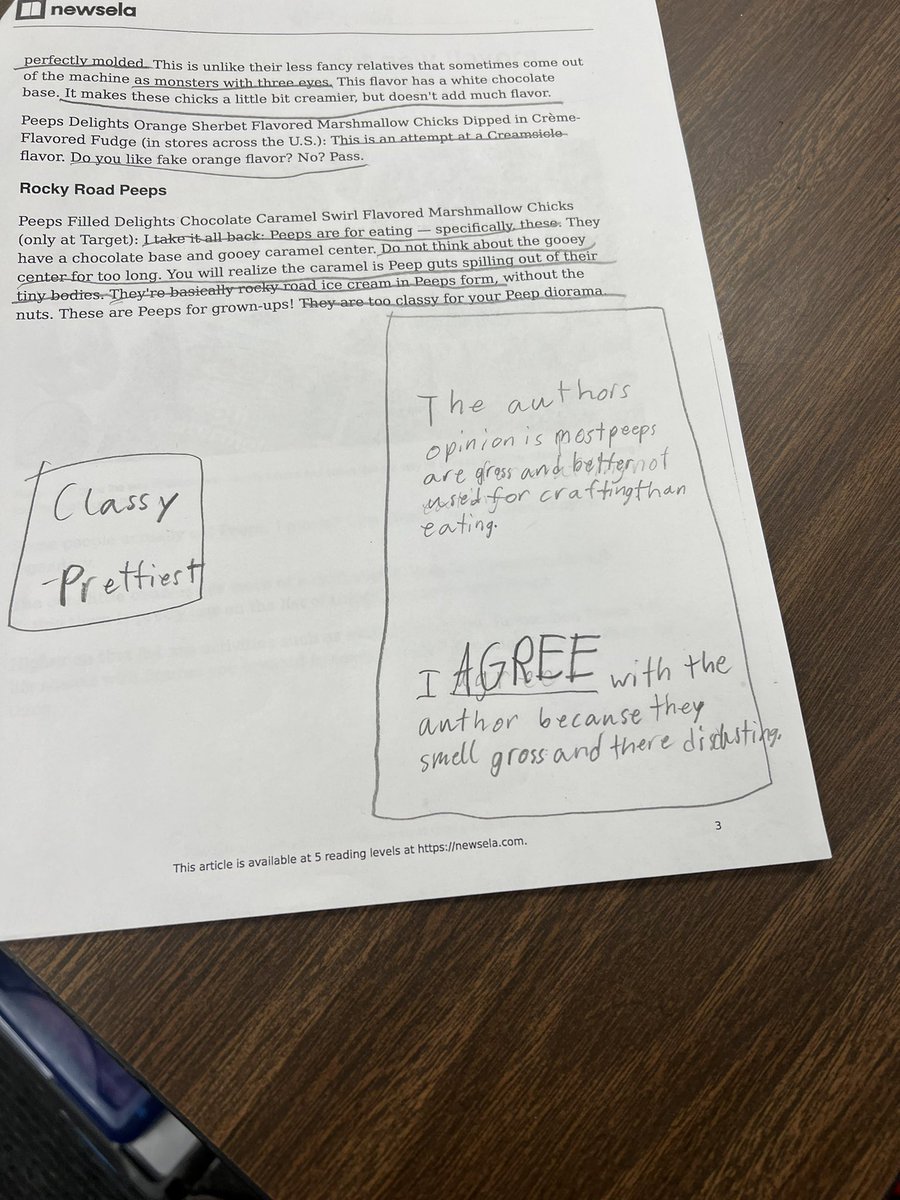 newsela
perfectly molded. This is unlike their less fancy relatives that sometimes come out
of the machine as monsters with three eyes. This flavor has a white chocolate
base. It makes these chicks a little bit creamier, but doesn't add much flavor.
Peeps Delights Orange Sherbet Flavored Marshmallow Chicks Dipped in Crème-
Flavored Fudge (in stores across the U.S.): This is an attempt at a Creamsicle
flavor. Do you like fake orange flavor? No? Pass.
Rocky Road Peeps
Peeps Filled Delights Chocolate Caramel Swirl Flavored Marshmallow Chicks
(only at Target): I take it all back: Peeps are for eating — specifically, these. They
have a chocolate base and gooey caramel center. Do not think about the gooey
center for too long. You will realize the caramel is Peep guts spilling out of their
tiny bodies. They're basically rocky road ice cream in Peeps form, without the
nuts. These are Peeps for grown-ups! They are too classy for your Peep diorama.
The authors
opinion is most peeps
are gross and better not
used for crafting than
eating.
Classy
-Prettiest
I AGREE with the
author because they
smell gross and there disgusting.
3
This article is available at 5 reading levels at https://newsela.com.